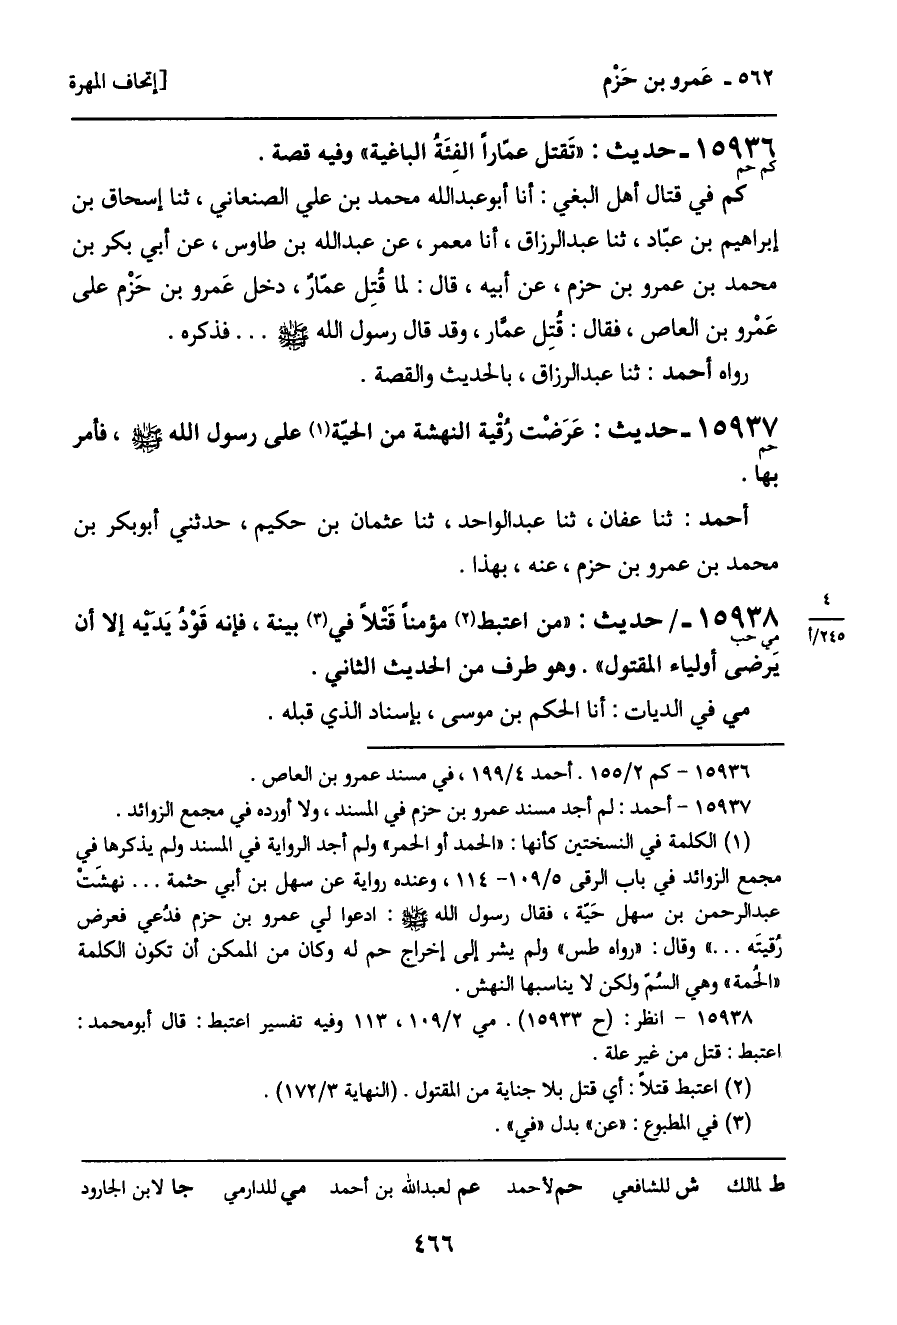 ٥٦٢ ـ عَمرو بن حَزْم [إتحاف المهرة
١٥٩٣٦ ـ حديث : «تَقتل عمّاراً الفِئَةُ الباغية» وفيه قصة .
كم حم
كم في قتال أهل البغي : أنا أبوعبدالله محمد بن علي الصنعاني ، ثنا إسحاق بن
إبراهيم بن عبّاد ، ثنا عبدالرزاق ، أنا معمر ، عن عبدالله بن طاوس ، عن أبي بكر بن
محمد بن عمرو بن حزم ، عن أبيه ، قال : لما قُتِل عمّارٌ ، دخل عَمرو بن حَزْم على
عَمْرو بن العاص ، فقال : قُتِل عمَّار ، وقد قال رسول الله ﷺ ... فذكره .
رواه أحمد : ثنا عبدالرزاق ، بالحديث والقصة .
١٥٩٣٧ ـ حديث : عَرَضْت رُقْية النهشة من الحيّة(١) على رسول الله ﷺ ، فأمر
حم
بها .
أحمد : ثنا عفان ، ثنا عبدالواحد ، ثنا عثمان بن حكيم ، حدثني أبوبكر بن
محمد بن عمرو بن حزم ، عنه ، بهذا .
٤
٢٤٥/أ
١٥٩٣٨ ـ/ حديث : «من اعتبط(٢) مؤمناً قَتْلاً في(٣) بينة ، فإنه قَوْدُ يَدَيْه إلا أن
مي حب
يَرضى أولياء المقتول» . وهو طرف من الحديث الثاني .
مي في الديات : أنا الحكم بن موسى ، بإسناد الذي قبله .
١٥٩٣٦ - كم ١٥٥/٢ . أحمد ١٩٩/٤ ، في مسند عمرو بن العاص .
١٥٩٣٧ - أحمد : لم أجد مسند عمرو بن حزم في المسند ، ولا أورده في مجمع الزوائد .
(١) الكلمة في النسختين كأنها : «الحمد أو الحمر» ولم أجد الرواية في المسند ولم يذكرها في
مجمع الزوائد في باب الرقى ١٠٩/٥- ١١٤ ، وعنده رواية عن سهل بن أبي حثمة ... نهشَتْ
عبدالرحمن بن سهل حَيّة ، فقال رسول الله ﷺ : ادعوا لي عمرو بن حزم فدُعي فعرض
رُقيتَه ...» وقال : «رواه طس» ولم يشر إلى إخراج حم له وكان من الممكن أن تكون الكلمة
«الحُمة» وهي السُمّ ولكن لا يناسبها النهش .
١٥٩٣٨ - انظر : (ح ١٥٩٣٣) . مي ١٠٩/٢ ، ١١٣ وفيه تفسير اعتبط : قال أبومحمد :
اعتبط : قتل من غير علة .
(٢) اعتبط قتلاً : أي قتل بلا جناية من المقتول . (النهاية ١٧٢/٣) .
(٣) في المطبوع : «عن» بدل «في» .
ط لمالك ش للشافعي حم لأحمد عم لعبدالله بن أحمد مي للدارمي جا لابن الجارود
٤٦٦